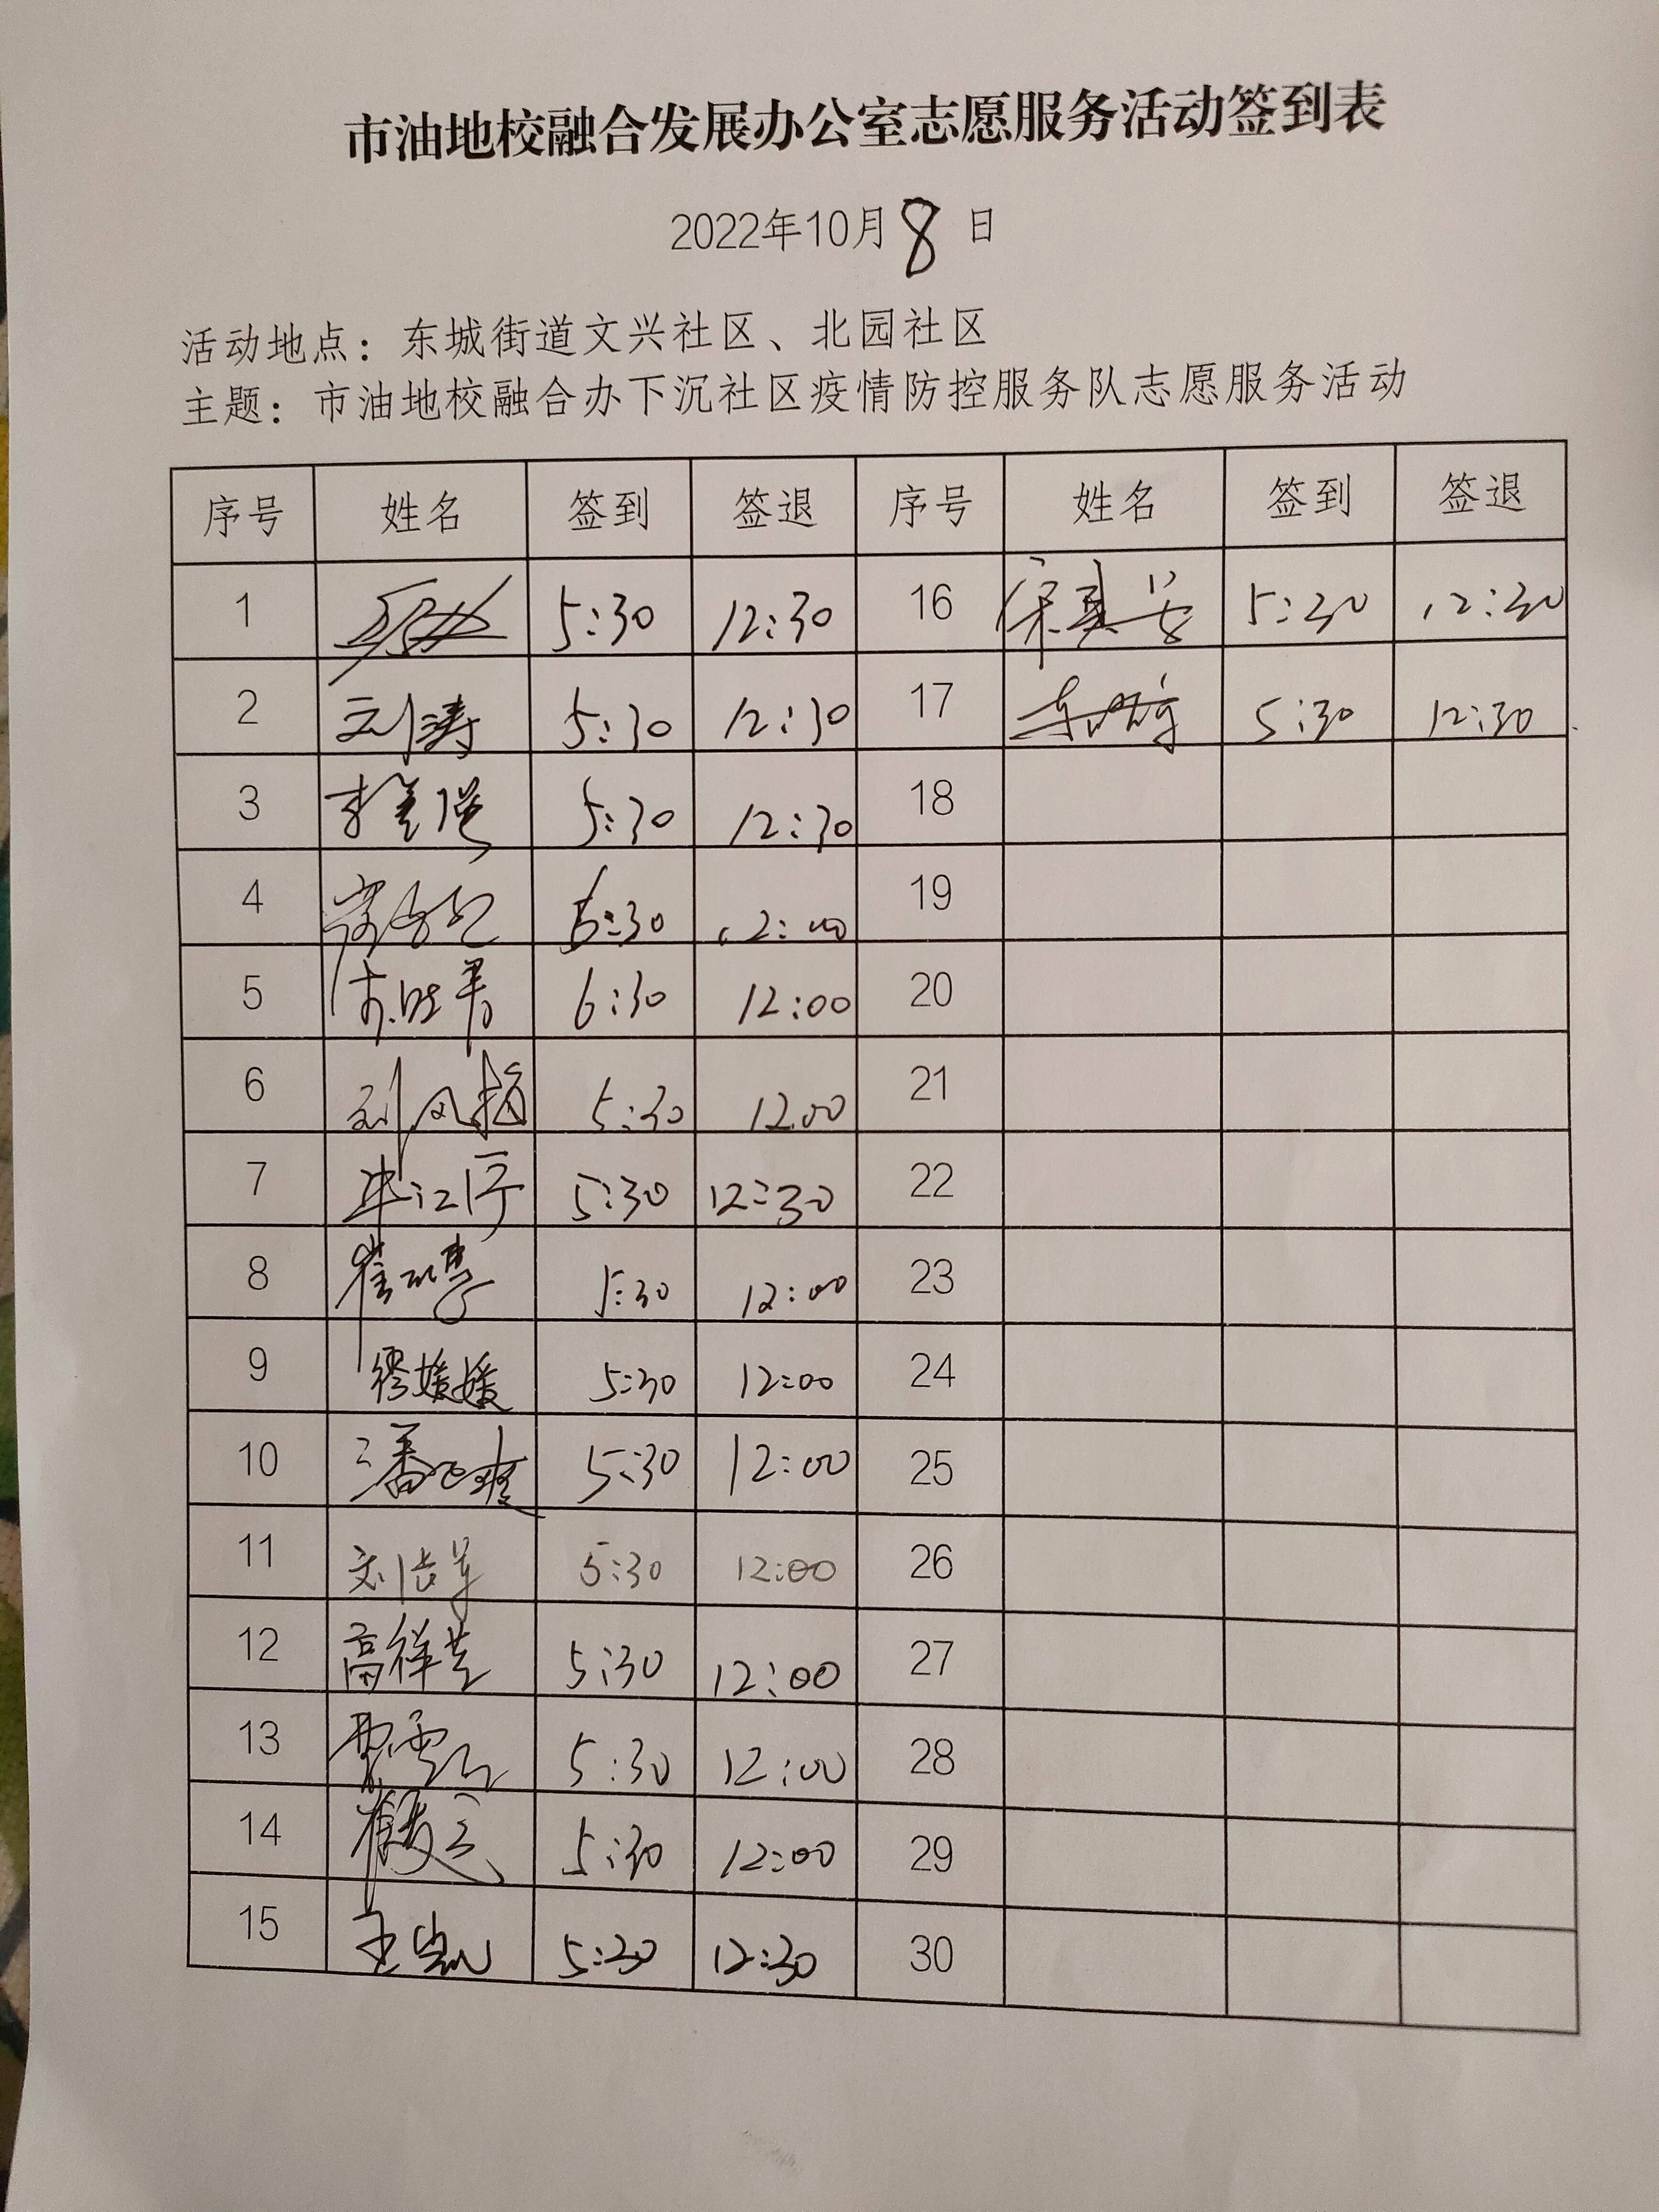 市油地校融合发展办公室志愿服务活动签到表
2022年10月8日
活动地点：东城街道文兴社区、北园社区
主题：市油地校融合办下沉社区疫情防控服务队志愿服务活动
序号 姓名 签到 签退 序号 姓名 签到 签退
1 5:30 12:30 16 5:30 12:30
2 刘涛 5:30 12:30 17 5:30 12:30
3 5:30 12:30 18
4 12:00 19
5 6:30 12:00 20
6 5:30 12:00 21
7 5:30 12:30 22
8 5:30 12:00 23
9 缪媛媛 5:30 12:00 24
10 5:30 12:00 25
11 5:30 12:00 26
12 高祥芝 5:30 12:00 27
13 5:30 12:00 28
14 5:30 12:00 29
15 王凯 5:30 12:30 30